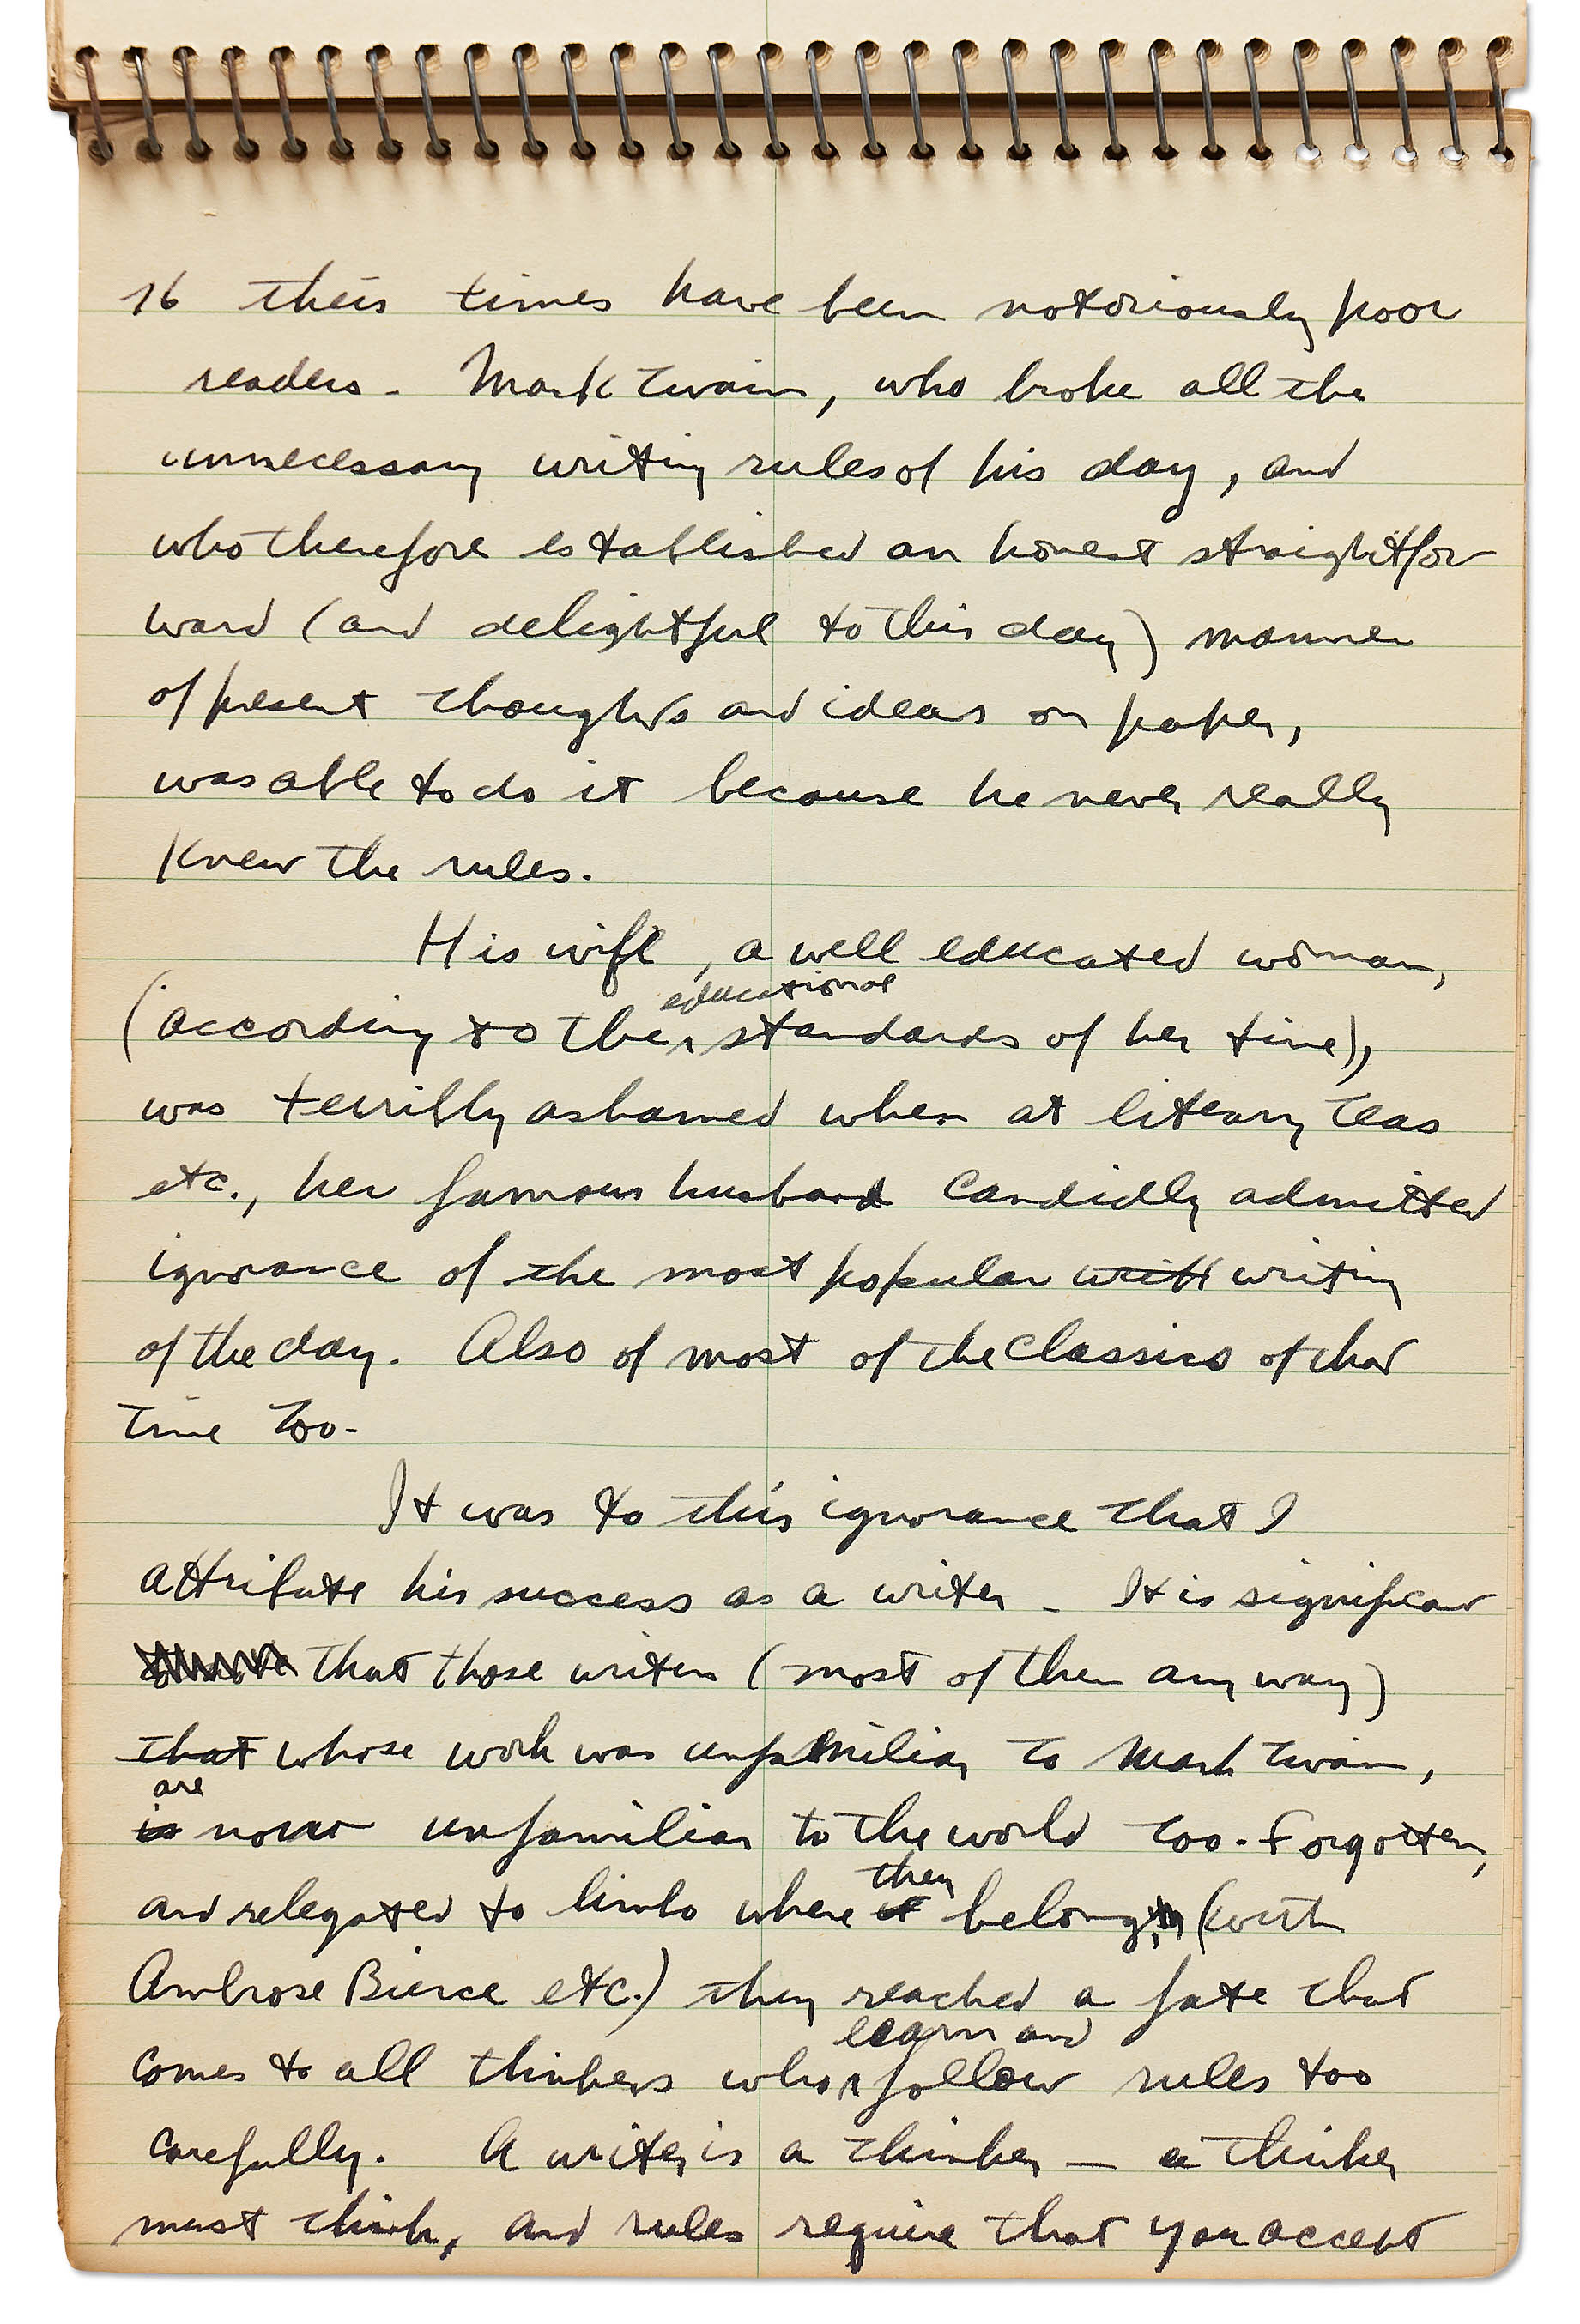 16 their times have been notoriously poor
readers. Mark Twain, who broke all the
unnecessary writing rules of his day, and
who therefore established an honest straightfor
ward (and delightful to this day) manner
of present thoughts and ideas on paper,
was able to do it because he never really
knew the rules.
His wife, a well educated woman,
educational
(according to the standards of her time),
was terribly ashamed when at literary teas
etc., her famous husband candidly admitted
ignorance of the most popular writ writing
of the day. Also of most of the classics of that
time too.
It was to this ignorance that I
attribute his success as a writer. It is significant
that those writers (most of them any way)
that whose work was unfamiliar to Mark Twain,
are
is now unfamiliar to the world too. Forgotten,
they
and relegated to limbo where it belong, (with
Ambrose Bierce etc.) they reached a fate that
learn and
comes to all thinkers who follow rules too
carefully. A writer is a thinker — a thinker
must think, and rules require that you accept